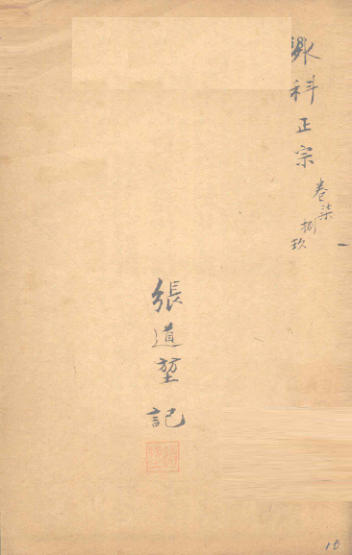 科正宗
卷柒
捌
玖
張道堃記
10